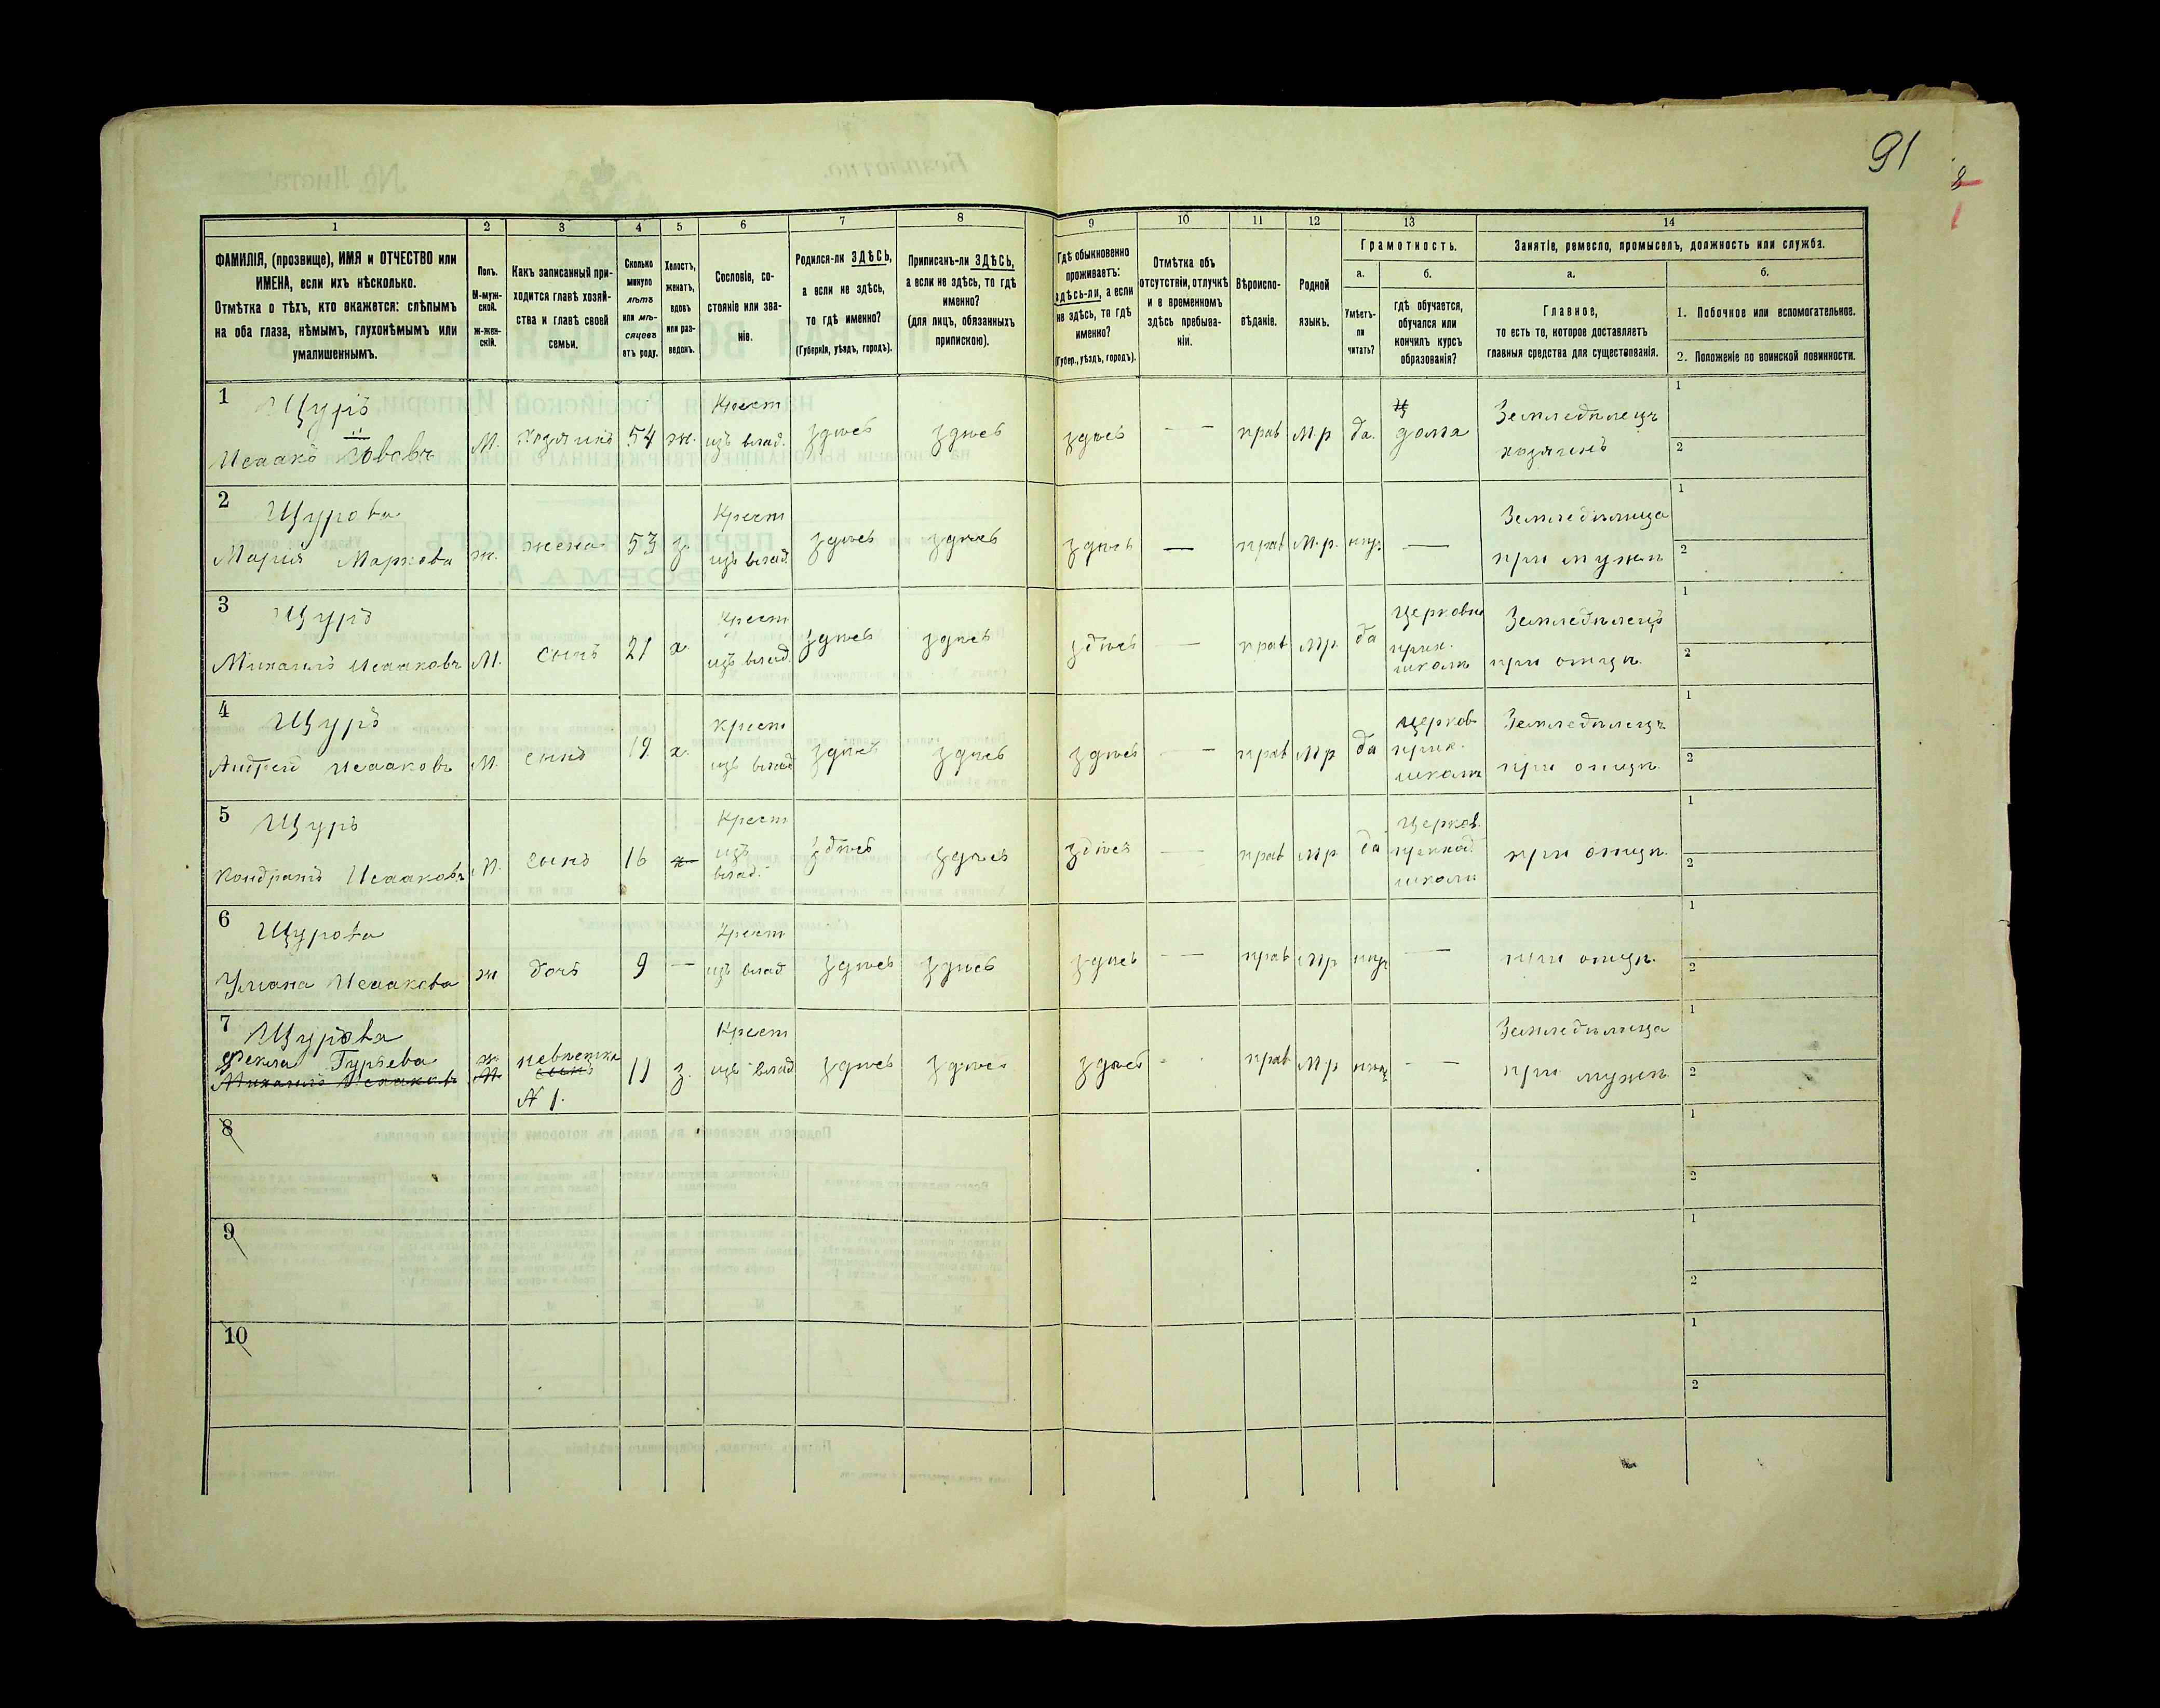 91
1 2 3 4 5 6 7 8 9 10 11 12 13 14
ФАМИЛІЯ, (прозвище), ИМЯ и ОТЧЕСТВО или
ИМЕНА, если ихъ нѣсколько.
Отмѣтка о тѣхъ, кто окажется: слѣпымъ
на оба глаза, нѣмымъ, глухонѣмымъ или
умалишеннымъ.
Полъ.
М-муж-
ской.
Ж-жен-
скій.
Какъ записанный при-
ходится главѣ хозяй-
ства и главѣ своей
семьи.
Сколько
минуло
лѣтъ
или мѣ-
сяцовъ
отъ роду.
Холостъ,
женатъ,
вдовъ
или раз-
веденъ.
Сословіе, со-
стояніе или зва-
ніе.
Родился-ли ЗДѢСЬ,
а если не здѣсь,
то гдѣ именно?
(Губернія, уѣздъ, городъ).
Приписанъ-ли ЗДѢСЬ,
а если не здѣсь, то гдѣ
именно?
(для лицъ, обязанныхъ
припискою).
Гдѣ обыкновенно
проживаетъ:
здѣсь-ли, а если
не здѣсь, то гдѣ
именно?
(Губер., уѣздъ, городъ).
Отмѣтка объ
отсутствіи, отлучкѣ
и о временномъ
здѣсь пребыва-
ніи.
Вѣроиспо-
вѣданіе.
Родной
языкъ.
Грамотность.
а.
Умѣетъ-
ли
читать?
б.
гдѣ обучается,
обучался или
кончилъ курсъ
образованія?
Занятіе, ремесло, промыселъ, должность или служба.
а.
Главное,
то есть то, которое доставляетъ
главныя средства для существованія.
б.
1. Побочное или вспомогательное.
2. Положеніе по воинской повинности.
1 Щуръ
Исаакъ
М. хозяинъ 54 ж.
Крест
изъ влад.
здѣсь здѣсь здѣсь — прав М.р да.
дома
Земледѣлецъ
хозяинъ
1
2
2 Щурова
Марія Маркова
ж. жена 53 з.
Крест
изъ влад.
здѣсь здѣсь здѣсь — прав М.р. —
Земледѣлица
при мужѣ
1
2
3 Щуръ
Михаилъ Исааковъ
М. сынъ 21 х.
Крест
изъ влад.
здѣсь здѣсь здѣсь — прав Мр. да
Церковно
прих.
школѣ
Земледѣлецъ
при отцѣ.
1
2
4 Щуръ
Андрей Исааковъ
М. сынъ 19 х.
Крест
изъ влад
здѣсь здѣсь здѣсь — прав Мр да
Церков
прих.
школѣ
Земледѣлецъ
при отцѣ.
1
2
5 Щуръ
Кондратъ Исааковъ
М. сынъ 16 х.
Крест
изъ
влад.
здѣсь здѣсь здѣсь — прав Мр да
Церков.
приход
школѣ
при отцѣ.
1
2
6 Щурова
Ульяна Исаакова
ж дочь 9 —
Крест
изъ влад
здѣсь здѣсь здѣсь — прав Мр —
при отцѣ.
1
2
7 Щурова
Фекла Гурьева
Михаилъ Исааковъ
ж.
М.
невѣстка
сынъ
N 1.
19 з.
Крест
изъ влад
здѣсь здѣсь здѣсь прав Мр —
Земледѣлица
при мужѣ
1
2
8
1
2
9
1
2
10
1
2